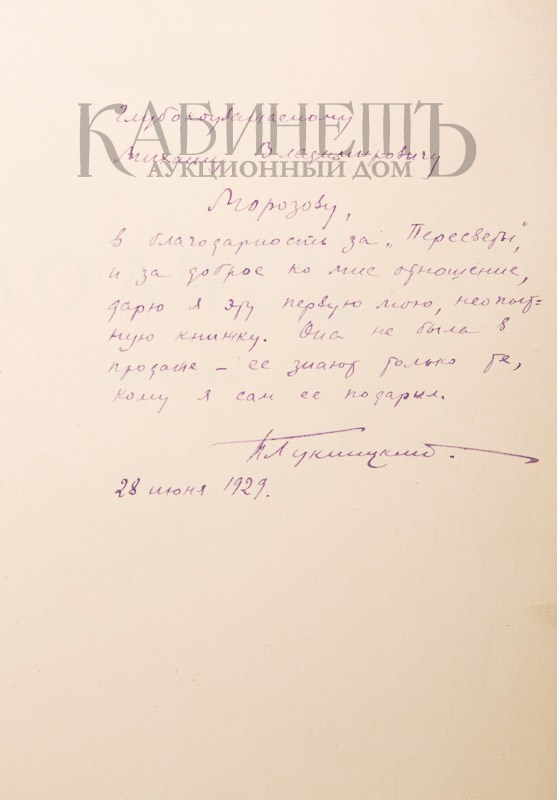 Глубокоуважаемому
КАБИНЕТЪ
Михаилу Владимировичу
АУКЦИОННЫЙ ДОМ
Морозову,
в благодарность за „Пересветы",
и за доброе ко мне отношение,
дарю я эту первую мою, неопыт-
ную книжку. Она не была в
продаже – ее знают только те,
кому я сам ее подарил.
ПЛукницкий.
28 июня 1929.